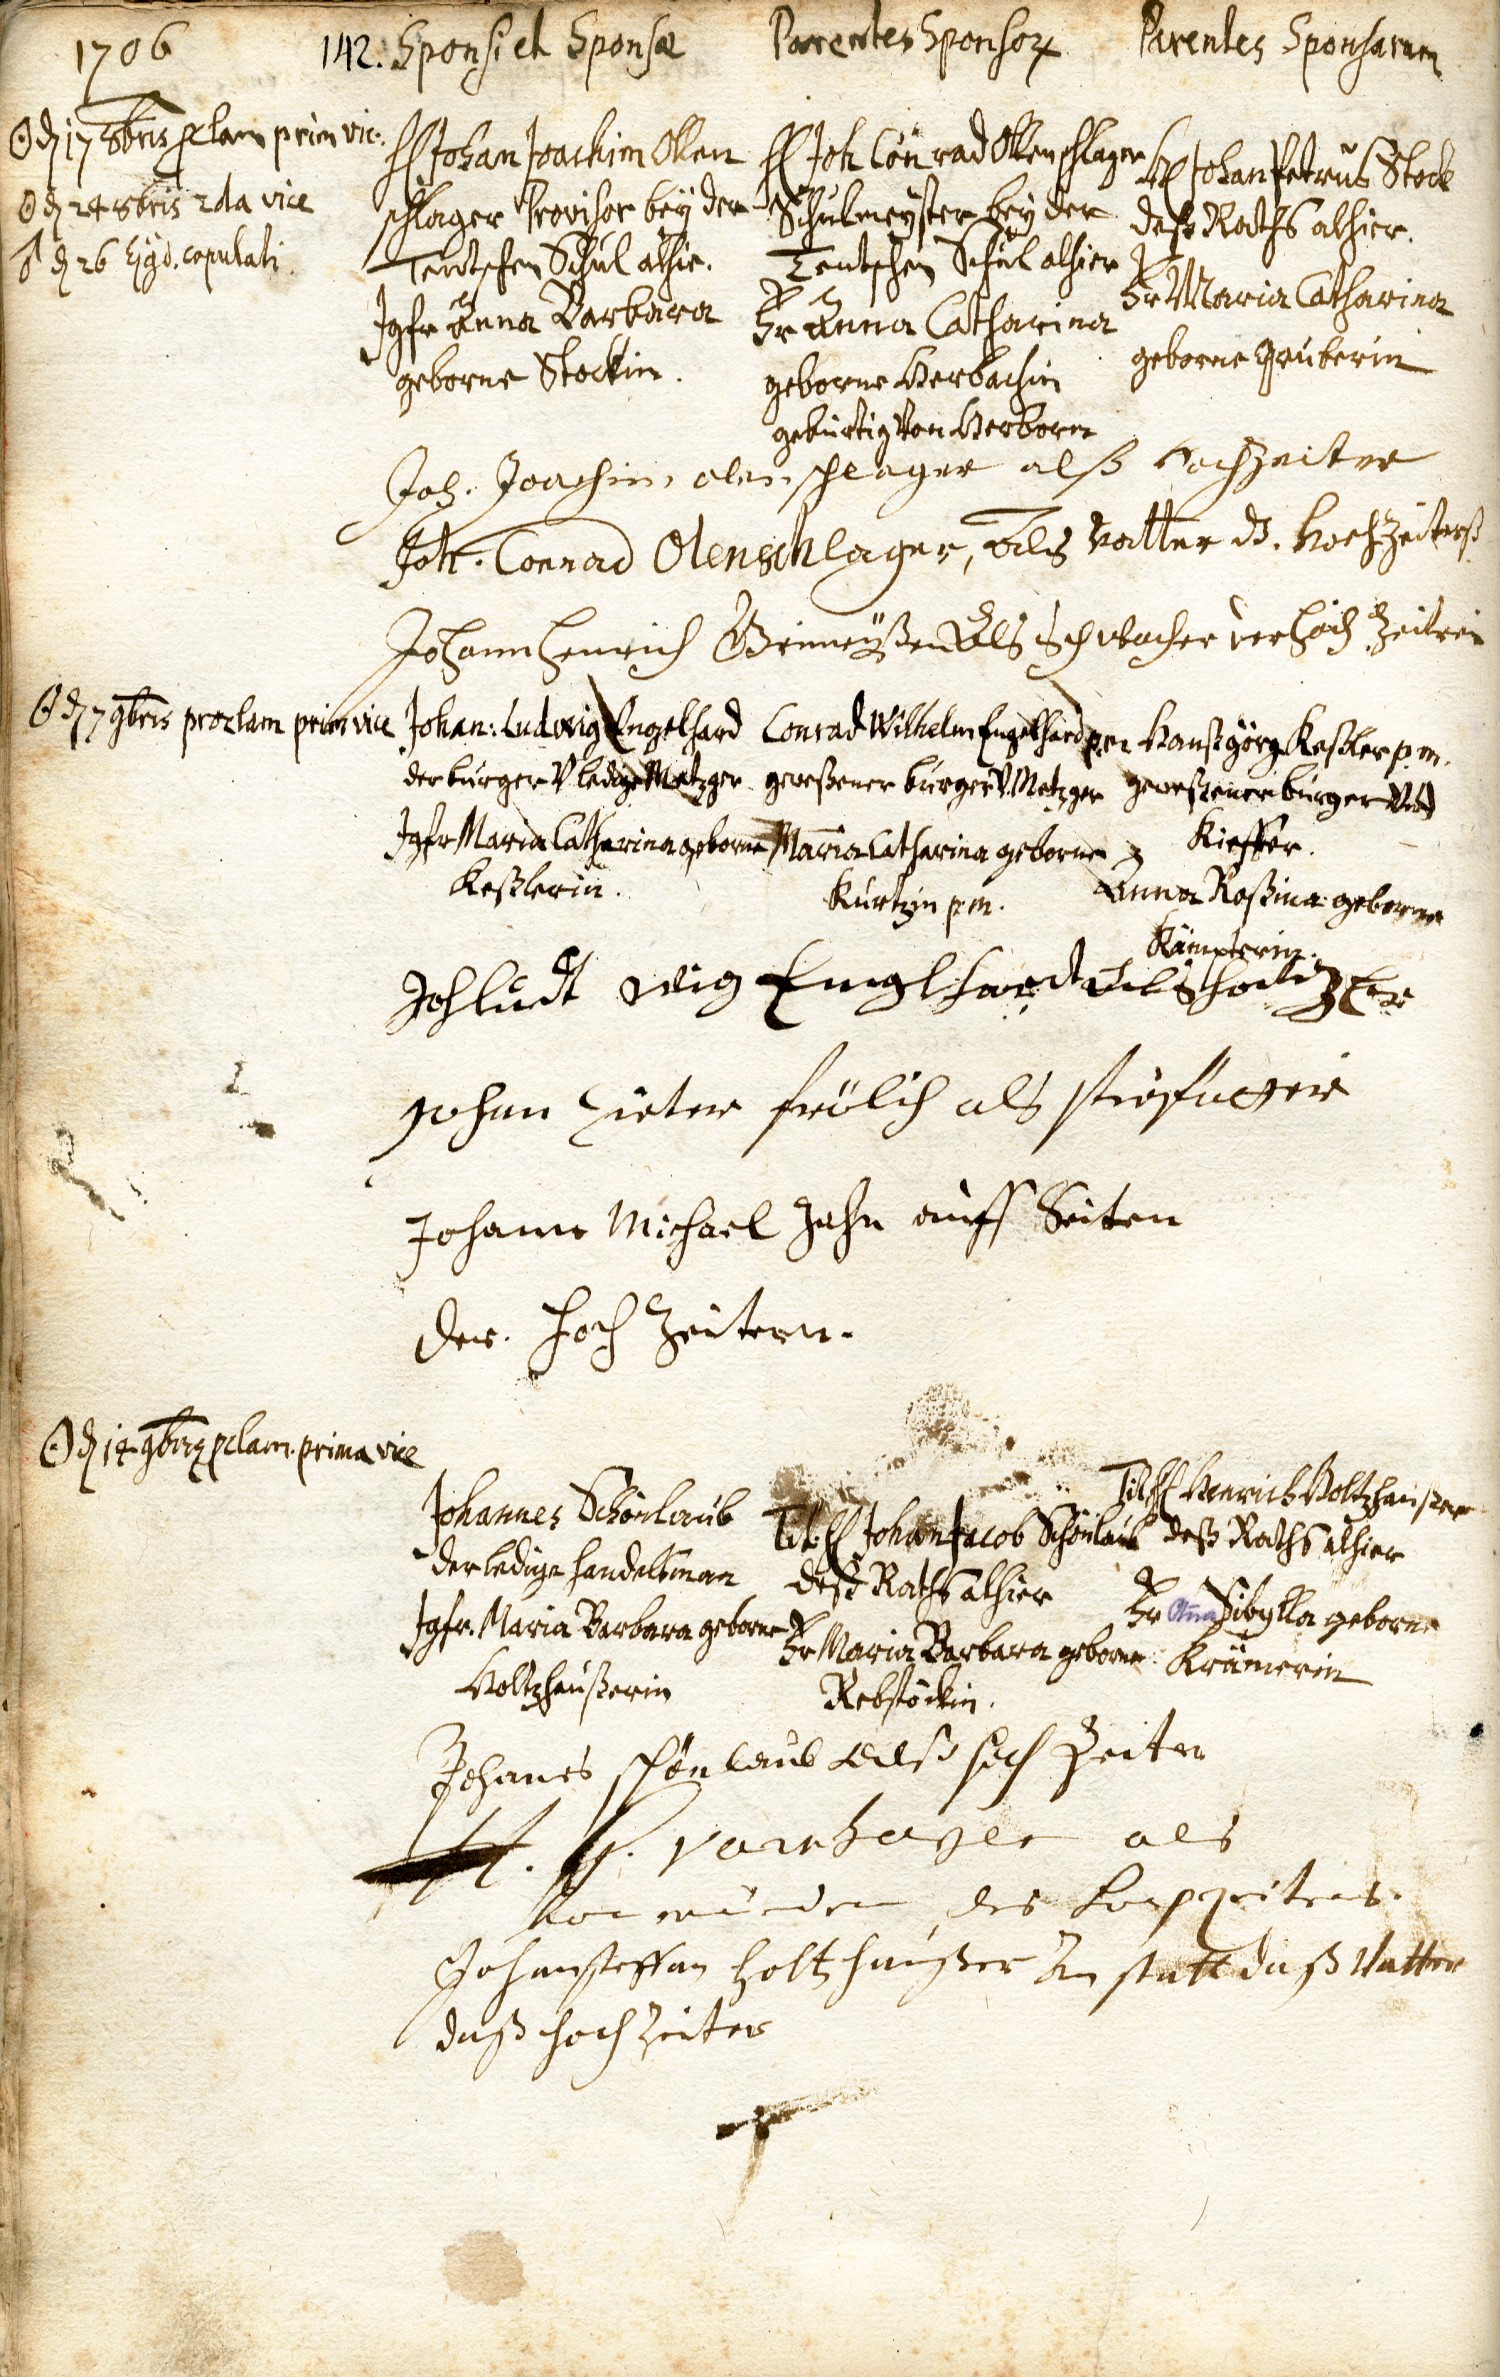 1706
142. Sponsi et Sponsæ
Parentes Sponsor
Parentes Sponsarum
☉ d 17 8bris pclam prim vic.
☉ d 24 8bris 2da vice
♂ d 26 Ejsd. copulati.
H Johan Joachim Ollen
schlager Provisor beÿ der
Teutschen Schul alhie.
Jgfr Anna Barbara
geborne Stockin.
H Joh Conrad Ollenschlager
Schulmeÿster beÿ der
Teutschen Schul alhier
Fr Anna Catharina
geborne Herbachin
gebürtig Von Herborn
H Johan Petrus Stock
deß Raths alhier.
Fr Maria Catharina
geborne Gruberin
Joh. Joachim olenschlager alß hochzeiter
Joh. Conrad Olenschlager, als Vatter d. hochzeiterß
Johann Henrich als der hochzeitrin
☉ d 7 9bris proclam prim vice
Johan: Ludwig Engelhard
der burger V ledige Metzger
Jgfr Maria Catharina geborne
Keßlerin.
Conrad Wilhelm Engelhard pm
geweßener burger V. Metzger
Maria Catharina geborne
Kurtzin pm.
Hanß görg Keßler p.m.
geweßener burger Und
Kieffer.
Anna Roßina geborne
Kämpferin.
Joh ludt wig Engelhardt als hochzeiter
Johan Peter frölich als
Johann Michael Jahn auff Seiten
der hoch Zeitern.
☉ d 14 9bris pclam. prima vice
Johannes Schönlaub
der ledige handelsman
Jgfr. Maria Barbara geborne
Holtzhaußerin
Tit. H Johan Jacob Schönlaub
deß Raths alhier
Fr Maria Barbara geborne
Rebstöckin.
Tit H Henrich Holtzhaußer
deß Raths alhier
Fr Anna Sibylla geborne
Krämerin
Johanes schönlaub alß hoch Zeiter
als
des hochzeiters.
Johan steffan holtzhaußer An statt daß Vatter
daß hoch zeiter